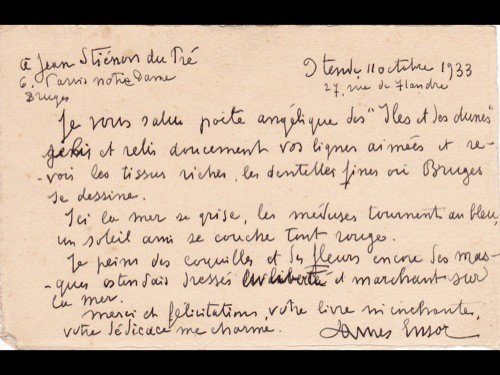 à Jean Stiénon du Pré
6. Parvis notre Dame
Bruges
Ostende, 11 octobre 1933
27, rue de Flandre
Je vous salue poète angélique des "Iles et des dunes"
je lis et relis doucement vos lignes aimées et re-
vois les tissus riches, les dentelles fines où Bruges
se dessine.
Ici la mer se grise, les méduses tournent au bleu,
un soleil ami se couche tout rouge.
Je peins des coquilles et des fleurs encore des mas-
ques ostendais dressés en liberté et marchant sur
la mer.
merci et félicitations, votre livre m'enchante,
votre dédicace me charme.
James Ensor